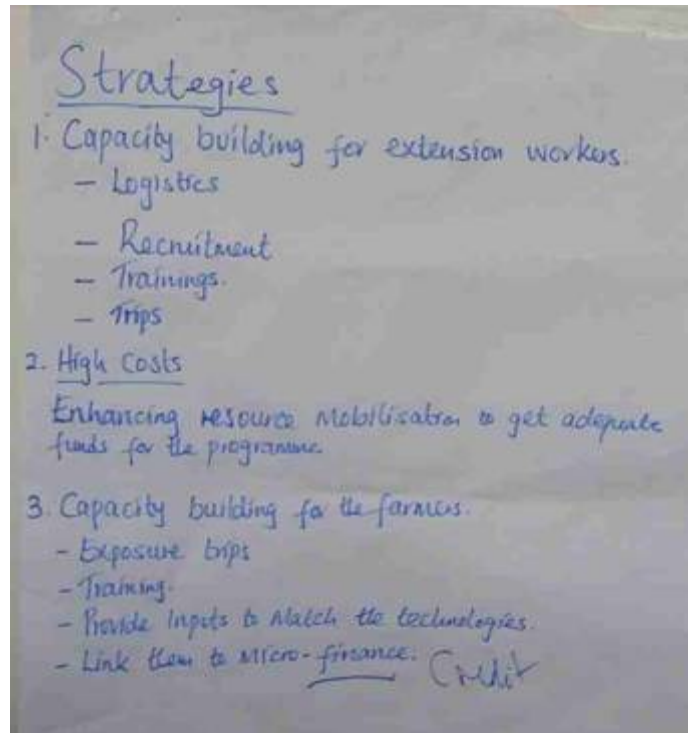 Strategies
1. Capacity building for extension workers.
- Logistics
- Recruitment
- Trainings.
- Trips
2. High Costs
Enhancing resource mobilisation to get adequate
funds for the programme
3. Capacity building for the farmers.
- Exposure trips
- Training.
- Provide Inputs to Match the technologies.
- Link them to Micro-finance. Credit